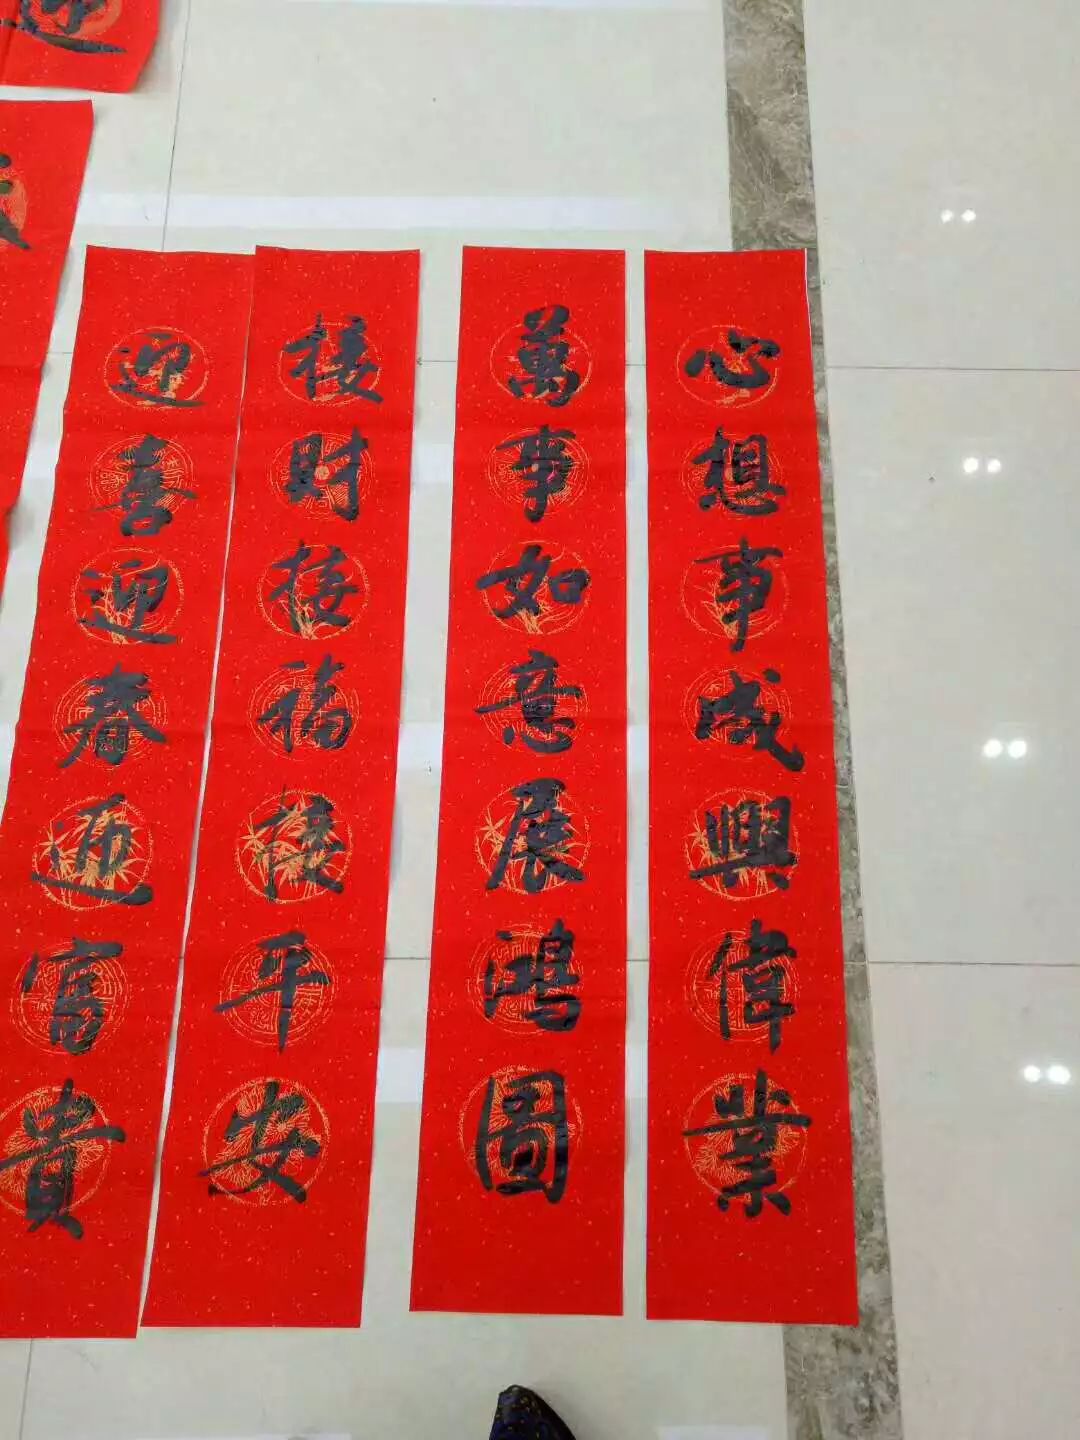 心想事成興偉業
萬事如意展鴻圖
接財接福接平安
迎喜迎春迎富貴
迎